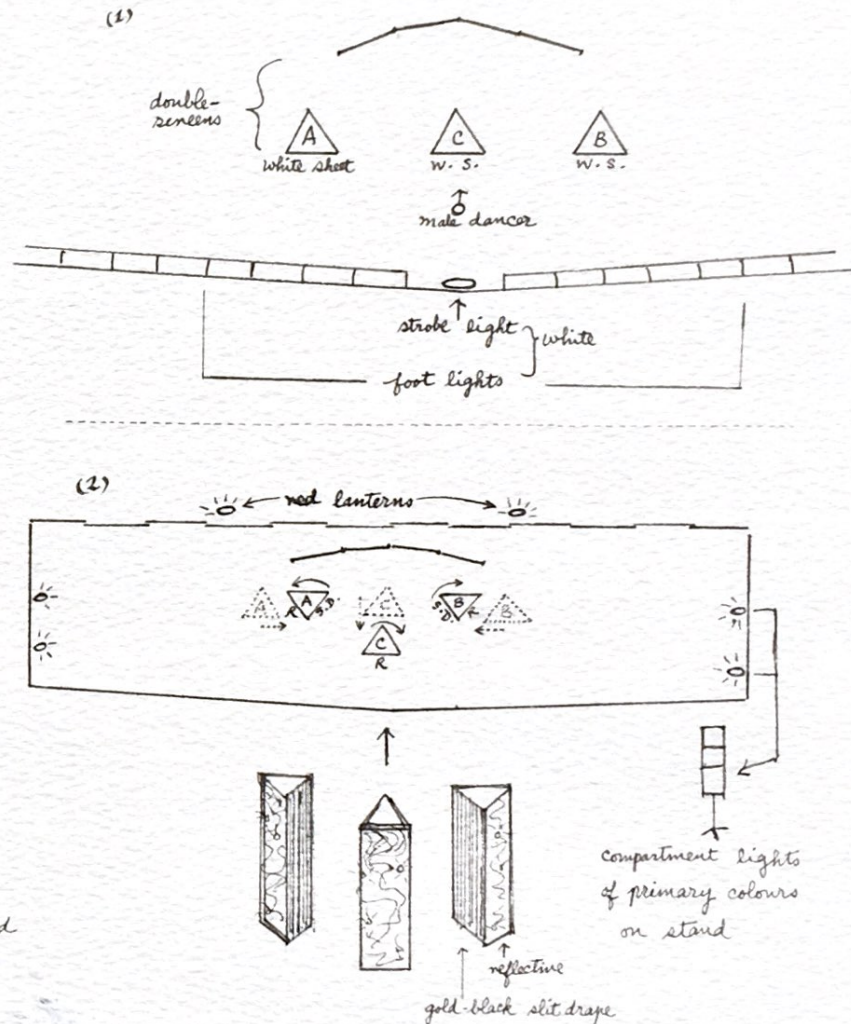 (1)
double-
screens
A
C
B
white sheet
W. S.
W. S.
male dancer
strobe light
white
foot lights
(2)
red lanterns
A
A
R
S.D.
C
C
R
B
S.D.
R
B
compartment lights
of primary colours
on stand
reflective
gold-black slit drape
d